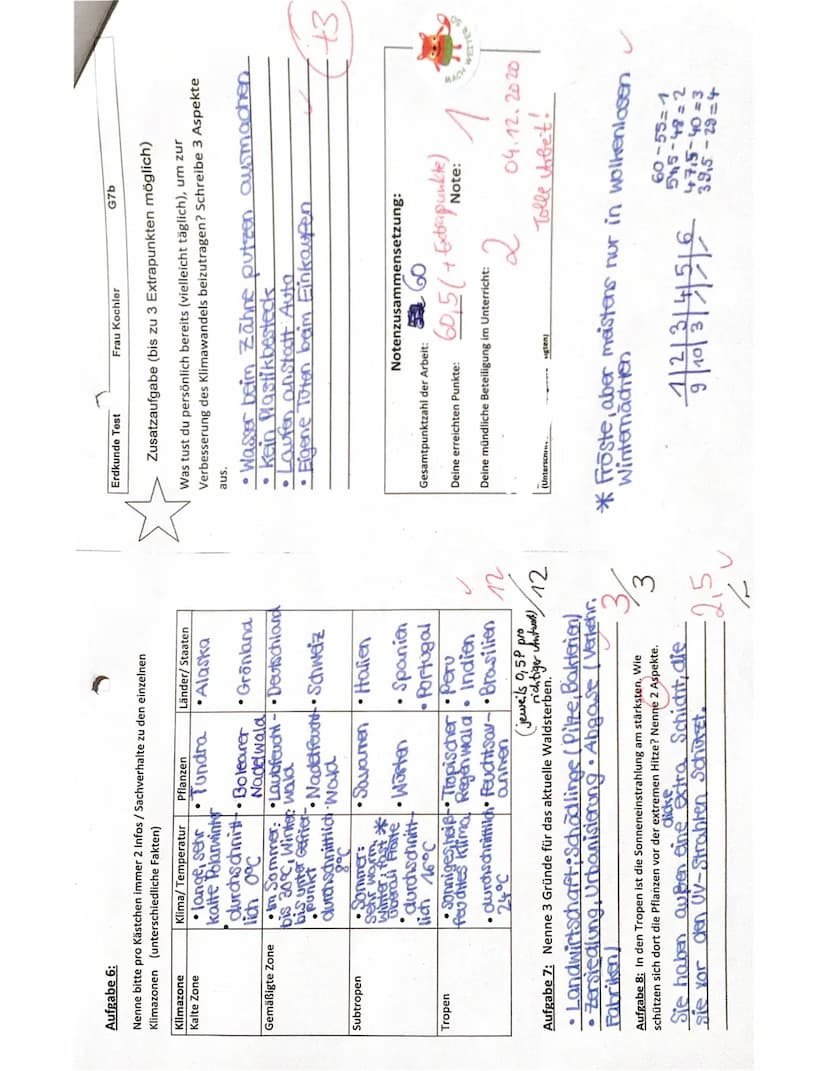 Aufgabe 6:
Nenne bitte pro Kästchen immer 2 Infos / Sachverhalte zu den einzelnen
Klimazonen (unterschiedliche Fakten)
Klimazone Klima/ Temperatur Pflanzen Länder/ Staaten
Kalte Zone
• lange, sehr
kalte Polarwinter
• durchschnitt-
lich 0°C
• Tundra
• Borearer
Nadelwald
• Alaska
• Grönland
Gemäßigte Zone
• Im Sommer:
bis 30°C, Winter:
bis unter Gefrier-
punkt
• durchschnittlich
8°C
• Laubfeucht-
wald
• Nadelfeucht-
wald
• Deutschland
• Schweiz
Subtropen
• Sommer:
sehr warm,
Winter: fast *
überall Fröste
• durchschnitt-
lich 16°C
• Savanen
• Wüsten
• Italien
• Spanien
• Portugal
Tropen
• sonniges, heiß-
feuchtes Klima,
• durchschnittlich
24°C
• Tropischer
Regenwald
• Feuchtsav-
annen
• Peru
• Indien
• Brasilien
12
(jeweils 0,5P pro
richtiger Antwort) /12
Aufgabe 7: Nenne 3 Gründe für das aktuelle Waldsterben.
• Landwirtschaft • Schädlinge (Pilze, Bakterien)
• Zersiedlung, Urbanisierung • Abgase (Verkehr,
Fabriken)
3/3
Aufgabe 8: In den Tropen ist die Sonneneinstrahlung am stärksten. Wie
schützen sich dort die Pflanzen vor der extremen Hitze? Nenne 2 Aspekte.
dicke
Sie haben außen eine extra Schicht, die
sie vor den UV-Strahlen schützt.
2,5
Erdkunde Test Frau Kochler G7b
Zusatzaufgabe (bis zu 3 Extrapunkten möglich)
Was tust du persönlich bereits (vielleicht täglich), um zur
Verbesserung des Klimawandels beizutragen? Schreibe 3 Aspekte
aus.
• Wasser beim Zähne putzen ausmachen
• Kein Plastikbesteck
• Laufen anstatt Auto
• Eigene Tüten beim Einkaufen
+3
MACH WEITER SO
Notenzusammensetzung:
Gesamtpunktzahl der Arbeit: 60
Deine erreichten Punkte: 60,5 (+ Extrapunkte) Note: 1
Deine mündliche Beteiligung im Unterricht: 2
2 04.12.2020
Tolle Arbeit!
* Fröste, aber meistens nur in wolkenlosen
Winternächten
1|2|3|4|5|6
9|10|3|/|/|/
60-55=1
54,5-48=2
47,5-40=3
39,5-29=4